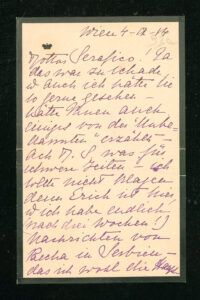 Wien 4-IX-14
Dottor Serafico! Ja
das war zu schade
u auch ich hätte Sie
so gerne gesehen –
hätte Ihnen auch
einiges von der "Unbe-
kannten" erzählen –
ach D. S. was für
schwere Zeiten – ich
will nicht klagen
denn Erich ist hier,
u ich habe endlich
nach drei Wochen
Nachrichten von
Pascha in Serbien –
das ist wohl die